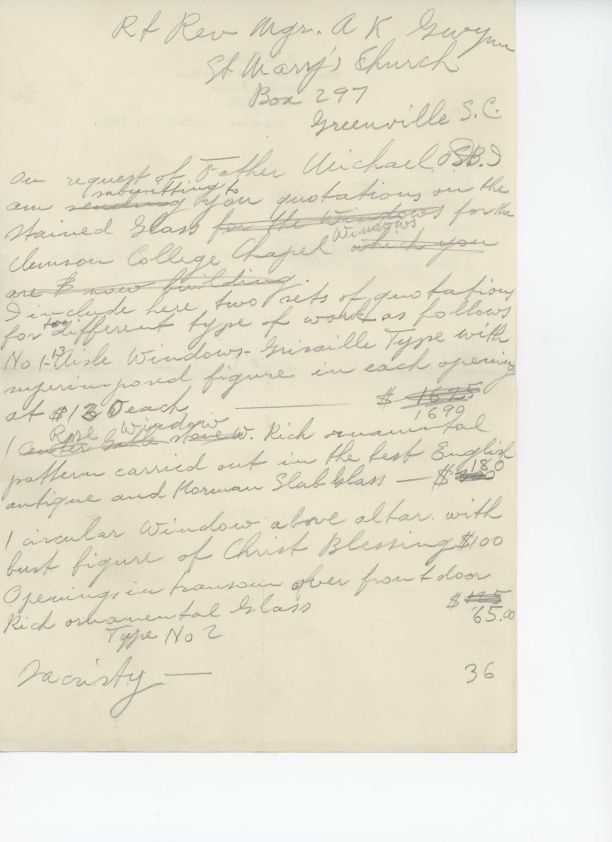 Rt Rev Mgr. A K Gwynn
St Mary's Church
Box 297
Greenville S.C.
On request of Father Michael OSB. I
submitting to
am sending you quotations on the
stained Glass for the Windows for the
Clemson College Chapel Windows which you
are now building.
I include here two sets of quotations
for two different type of work as follows
No 1-13 Aisle Windows - Grisaille Type with
superimposed figure in each opening
at $130 each $ 1625
1690
Rose Window
1 Center Gable W. Rich ornamental
pattern carried out in the best English
antique and Norman Slab Glass — $ 180
1 circular Window above altar. with
bust figure of Christ Blessing $100
Openings in transom over front door
Rich ornamental Glass $ 125
65.00
Type No 2
Sacristy — 36